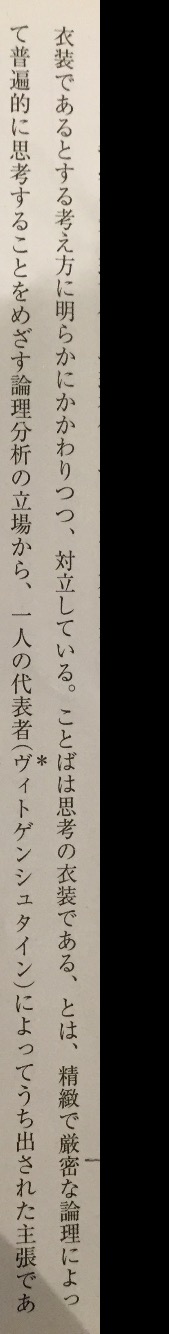 衣装であるとする考え方に明らかにかかわりつつ、対立している。ことばは思考の衣装である、とは、精緻で厳密な論理によっ
て普遍的に思考することをめざす論理分析の立場から、一人の代表者(ヴィトゲンシュタイン)*によってうち出された主張であ